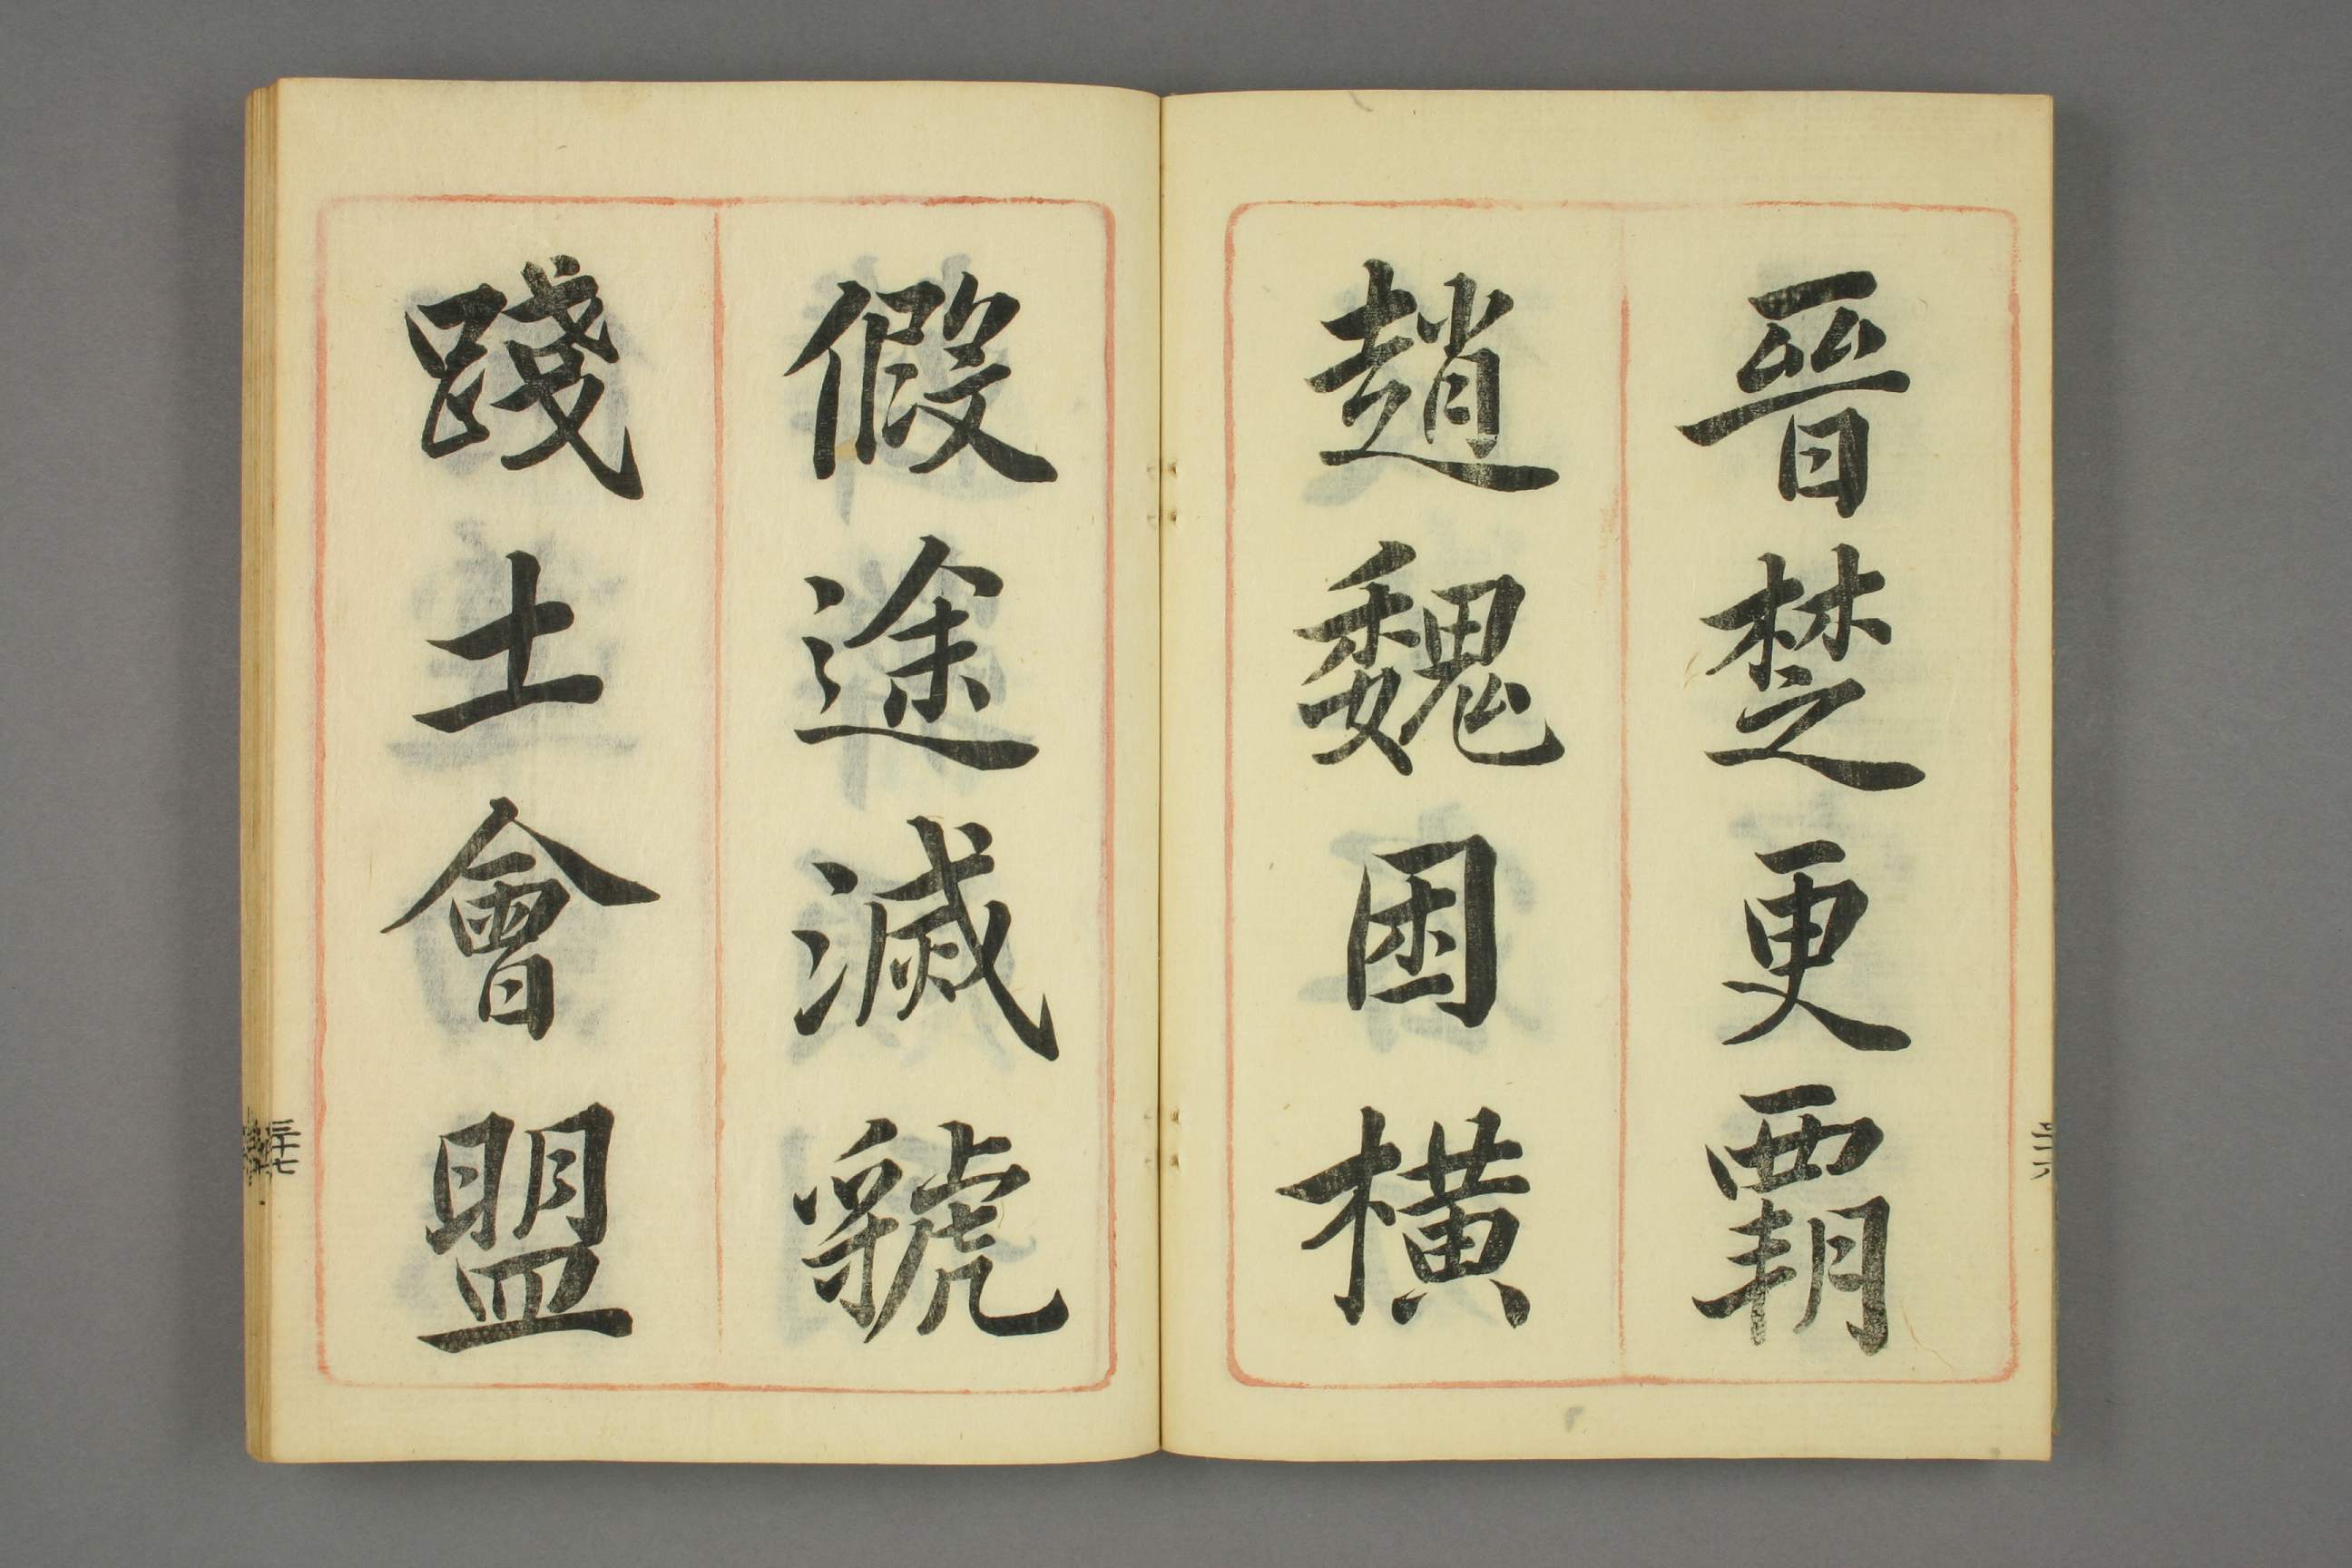 晉楚更覇
趙魏困橫
假途滅虢
踐土會盟
三十七